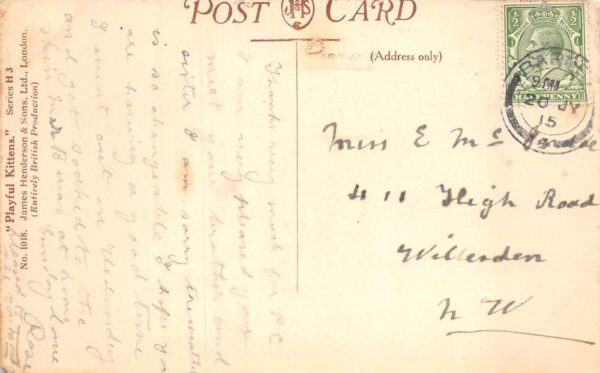 POST CARD
JHS
(Address only)
"Playful Kittens." Series H 3
No. 1018. James Henderson & Sons, Ltd., London.
(Entirely British Production)
HALF PENNY
BARKING
9 PM
20 JY
15
Miss E Mc
411 High Road
Willesden
N W
Thanks very much for PC
I am very pleased you
meet your brother and
sister I am sorry the weather
is so changeable I hope you
are having a good time
I went out on Wednesday
and got soaked to the
skin Mr B was at home
Sunday love
Rose